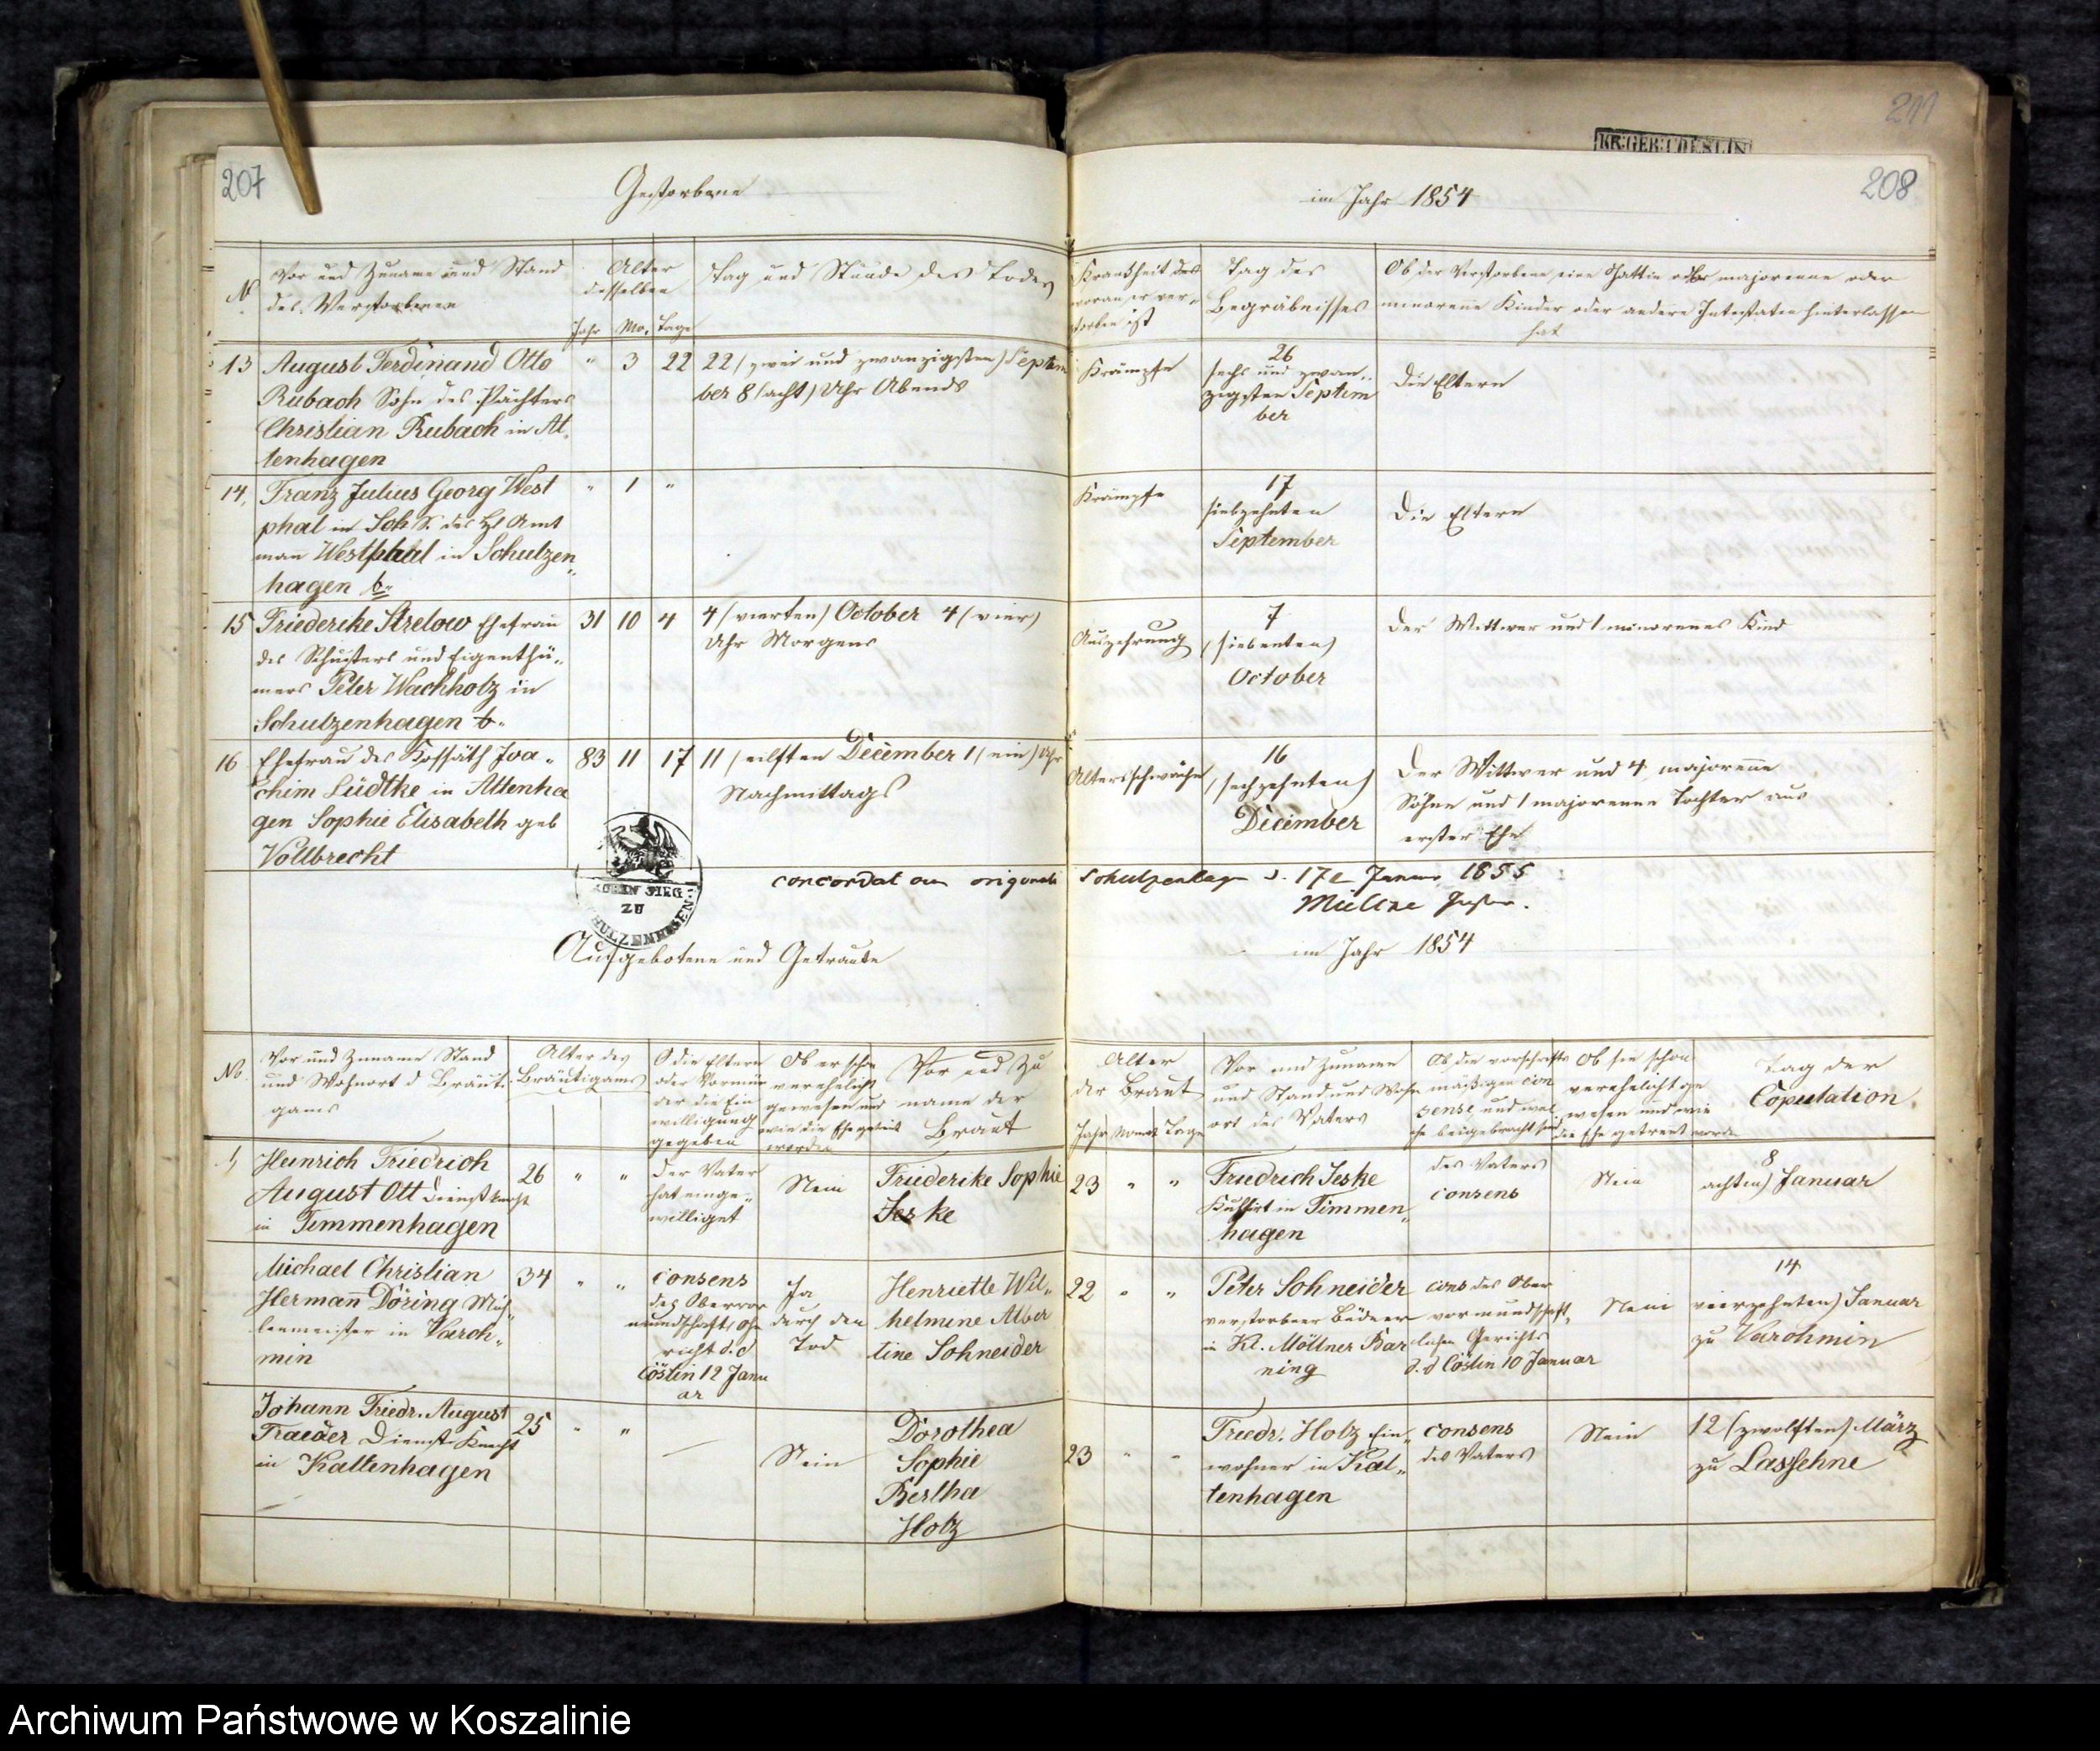 207
Gestorbene
im Jahr 1854
208
211
KR:GER:COESLIN
No
Vor und Zuname und Stand
des Verstorbenen
Alter
desselben
Jahr Mo. Tage
Tag und Stunde des Todes
Krankheit des
woran er ver-
storben ist
Tag des
Begräbnisses
Ob der Verstorbene eine Gattin oder majorenne oder
minorene Kinder oder andere Intestaten hinterlassen
hat
13 August Ferdinand Otto
Rubach Sohn des Pächters
Christian Rubach in At-
tenhagen
" 3 22
22 (zwei und zwanzigsten) Septem
ber 8 (acht) Uhr Abends
Krämpfe
26
sechs und zwan-
zigsten Septem
ber
Die Eltern
14. Franz Julius Georg West
phal in Sch S. des H. Amt
man Westphal in Schulzen
hagen b.
" 1 "
Krämpfe
17
siebzehnten
September
Die Eltern
15 Friedericke Strelow Ehefrau
des Schusters und Eigenthü-
mers Peter Wachholz in
Schulzenhagen b.
31 10 4
4 (vierten) October 4 (vier)
Uhr Morgens
Auszehrung
7
(siebenten)
October
Der Wittwer und 1 minorenes Kind
16 Ehefrau des Kossäth Joa-
chim Lüdtke in Altenha
gen Sophie Elisabeth geb
Vollbrecht
83 11 17
11 (eilften December 1 (ein) Uhr
Nachmittags
Altersschwäche
16
(sechzehnten)
December
Der Wittwer und 4 majorenne
Söhne und 1 majorenne Tochter aus
erster Ehe
KIRCHEN SIEG:
ZU
SCHULZENHAGEN
concordat cum originali Schulzenhagen d. 17t Januar 1855
Müller Pastor.
Aufgebotene und Getraute
im Jahr 1854
No.
Vor und Zuname Stand
und Wohnort d Bräuti-
gams
Alter des
Bräutigams
O die Eltern
oder Vormün
der die Ein
willigung
gegeben
Ob er schon
verehelicht
gewesen und
wie die Ehe getrent
worden
Vor und Zu
name der
Braut
Alter
der Braut
Jahr Monat Tage
Vor und Zuname
und Stand und Wohn
ort des Vaters
Ob die vorschrifts
mäßigen Con
sense und wel
che beigebracht sind
Ob sie schon
verehelicht ge
wesen und wie
die Ehe getrent worden
Tag der
Copulation.
1, Heinrich Friedrich
August Ott Dienstknecht
in Timmenhagen
26 " "
Der Vater
hat einge-
williget
Nein
Friederike Sophie
Jeske
23 " "
Friedrich Jeske
Kuhhirt in Timmen-
hagen
des Vaters
consens
Nein
8
achten) Januar
Michael Christian
Hermann Döring Müh-
lenmeister in Varch-
min
34 " "
consens
des Obervor
mundschafts Ge
richt d.d
Cöslin 12 Janu
ar
Ja
durch den
Tod
Henriette Wil-
helmine Alber
tine Schneider
22 " "
Peter Schneider
verstorbner Büdner
in Kl. Möllner Bar
ning
cons des Ober
vormundschaft-
lichen Gerichts
d.d Cöslin 10 Januar
Nein
14
vierzehnten) Januar
zu Varchmin
Johann Friedr. August
Traeder Dienst Knecht
in Kaltenhagen
25 " "
Nein
Dorothea
Sophie
Bertha
Holz
23 " "
Friedr. Holz Ein-
wohner in Kal-
tenhagen
consens
des Vaters
Nein
12 (zwolften) März
zu Lassehne
Archiwum Państwowe w Koszalinie